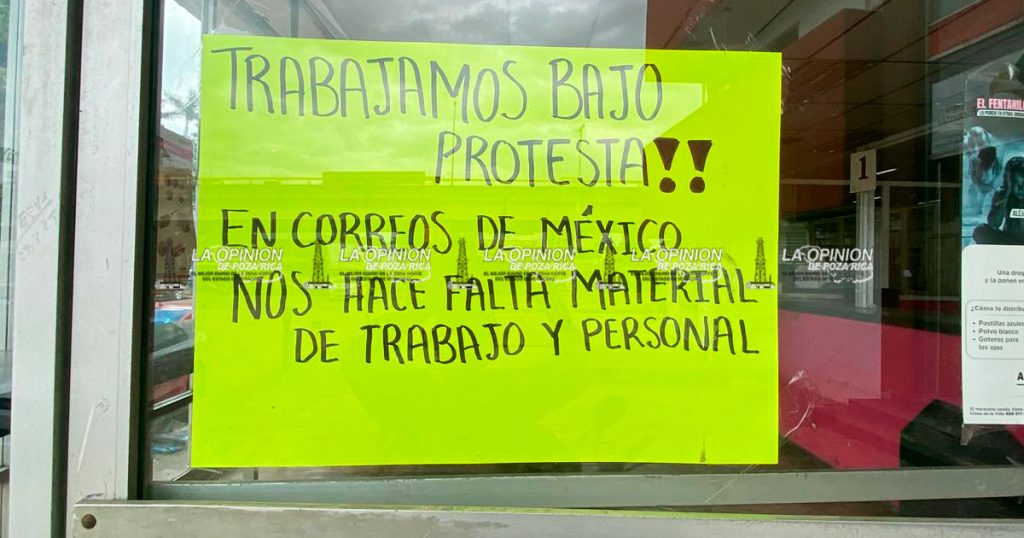 TRABAJAMOS BAJO
PROTESTA!!
EN CORREOS DE MÉXICO
NOS HACE FALTA MATERIAL
DE TRABAJO Y PERSONAL
LA OPINION
DE POZA RICA
LA OPINION
DE POZA RICA
LA OPINION
DE POZA RICA
LA OPINION
DE POZA RICA
LA OPINION
DE POZA RICA
1
EL FENTANILO
Una drog
y la ponen en
¿Cómo la distrib
• Pastillas azules
• Polvo blanco
• Goteros para
los ojos